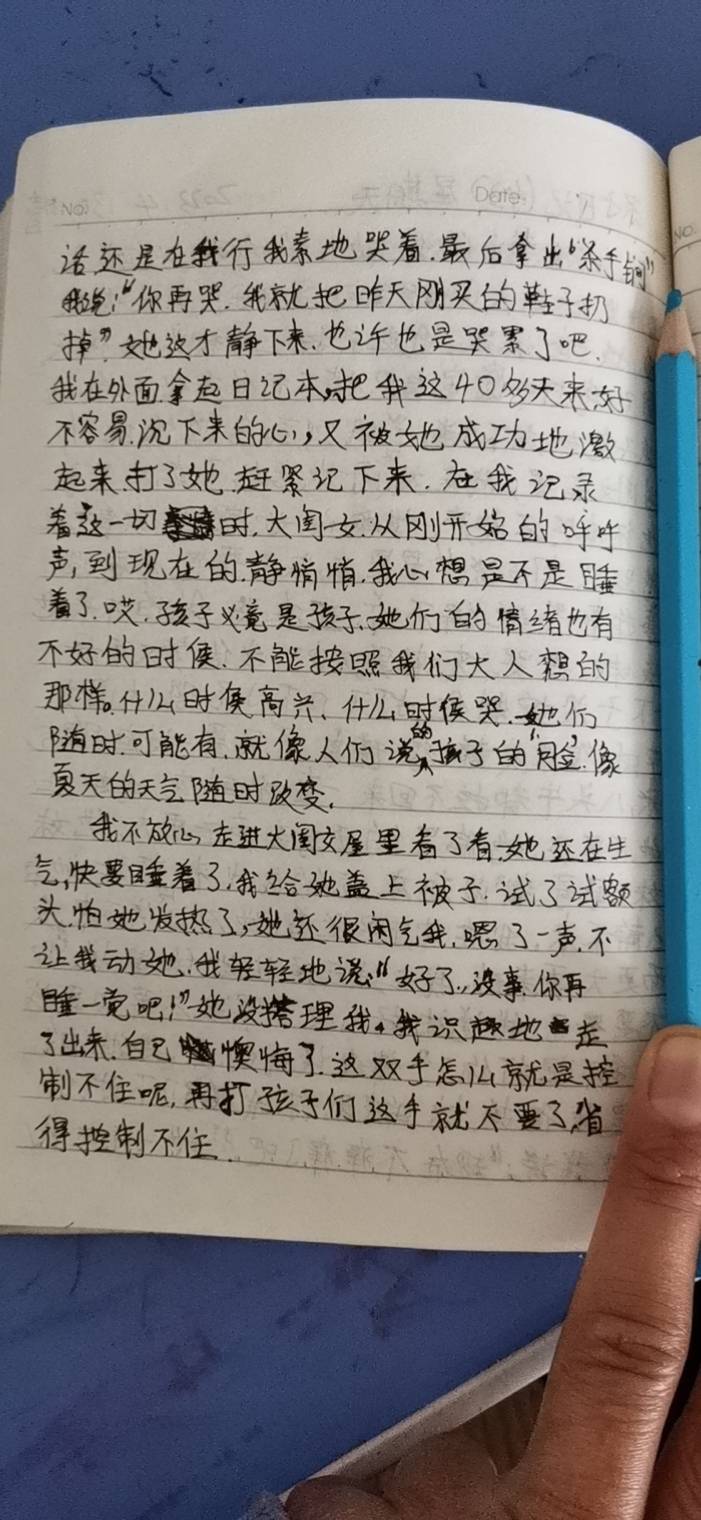 No.
Date.
NO.
话还是在我行我素地哭着.最后拿出“杀手锏”
我说:“你再哭.我就把昨天刚买的鞋子扔
掉”她这才静下来.也许也是哭累了吧.
我在外面拿起日记本,把我这40多天来好
不容易沉下来的心,又被她成功地激
起来.打了她.赶紧记下来.在我记录
着这一切时.大闺女.从刚开始的呼呼
声,到现在的.静悄悄.我心想是不是睡
着了.哎.孩子必竟是孩子.她们的情绪也有
不好的时候.不能按照我们大人想的
那样。什么时候高兴.什么时候哭.她们
随时.可能有.就像人们说的孩子的脸.像
夏天的天气随时改变.
我不放心走进大闺女屋里看了看.她还在生
气,快要睡着了.我给她盖上被子.试了试额
头.怕她发热了,她还很闹气我.嗯了一声.不
让我动她.我轻轻地说:“好了.没事.你再
睡一觉吧!”她没搭理我。我识趣地走
了出来.自己懊悔了.这双手怎么就是控
制不住呢,再打孩子们这手就不要了,省
得控制不住.